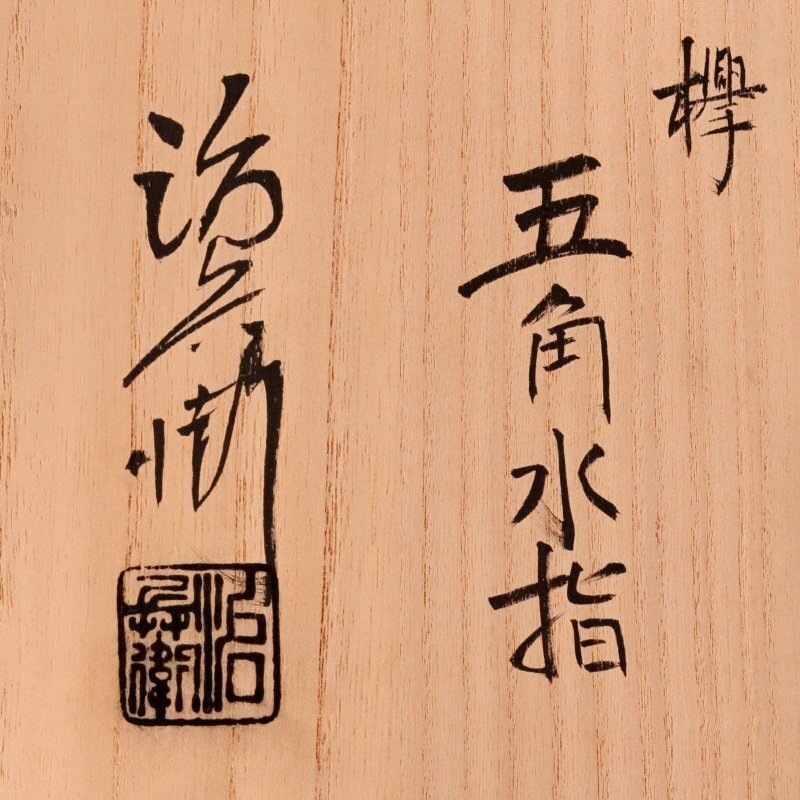 欅
五角水指
治兵衛
治兵衛